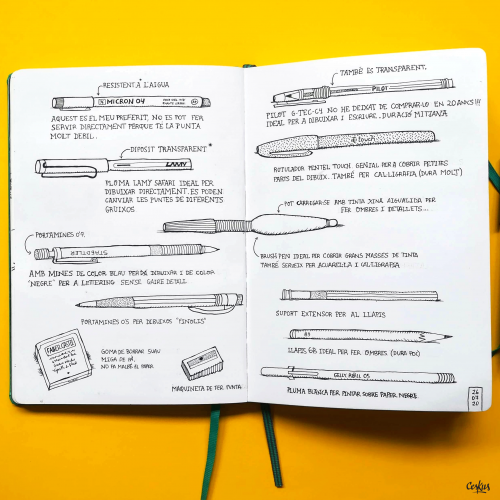 RESISTENT A L'AIGUA
MICRON 04
AQUEST ÉS EL MEU PREFERIT, NO ES POT FER
SERVIR DIRECTAMENT PERQUÈ TÉ LA PUNTA
MOLT DÈBIL.
DIPÒSIT TRANSPARENT *
LAMY
PLOMA LAMY SAFARI IDEAL PER
DIBUIXAR DIRECTAMENT. ES PODEN
CANVIAR LES PUNTES DE DIFERENTS
GRUIXOS
PORTAMINES 0'7.
STAEDTLER
AMB MINES DE COLOR BLAU PER DIBUIXAR I DE COLOR
"NEGRE" PER A LETTERING SENSE GAIRE DETALL
PORTAMINES 0'5 PER DIBUIXOS "FINOLIS"
GOMA DE BORRAR SUAU
MIGA DE PA,
NO FA MALBÉ EL PAPER
MAQUINETA DE FER PUNTA
TAMBÉ ÉS TRANSPARENT.
PILOT
PILOT G-TEC-C4 NO HE DEIXAT DE COMPRAR-LO EN 20 ANYS!!!
IDEAL PER A DIBUIXAR I ESCRIURE. DURACIÓ MITJANA
touch
RETOLADOR PENTEL TOUCH GENIAL PER A COBRIR PETITES
PARTS DEL DIBUIX. TAMBÉ PER CAL·LIGRAFIA (DURA MOLT)
POT CARREGAR-SE AMB TINTA XINA AIGUALIDA PER
FER OMBRES I DETALLETS...
BRUSH PEN IDEAL PER COBRIR GRANS MASSES DE TINTA
TAMBÉ SERVEIX PER AQUAREL·LA I CAL·LIGRAFIA
SUPORT EXTENSOR PER AL LLAPIS
LLAPIS 6B IDEAL PER FER OMBRES (DURA POC)
GELLY ROLL 05
PLUMA BLANCA PER PINTAR SOBRE PAPER NEGRE
26
07
20